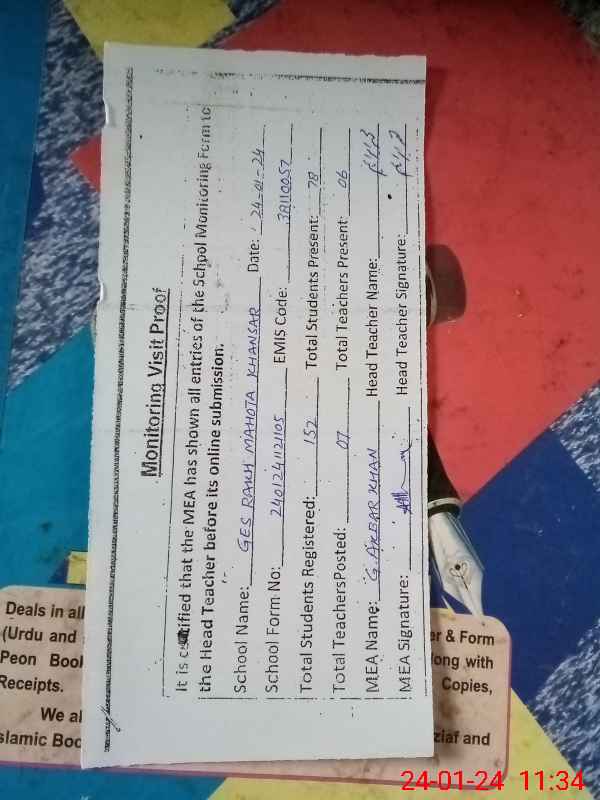 Monitoring Visit Proof
It is certified that the MEA has shown all entries of the School Monitoring Form to
the Head Teacher before its online submission.
School Name: GES RAKH MAHOTA KHANSAR Date: 24-01-24
School Form No: 2401241121105 EMIS Code: 38110057
Total Students Registered: 152 Total Students Present: 78
Total TeachersPosted: 07 Total Teachers Present: 06
MEA Name: G. AKBAR KHAN Head Teacher Name:
MEA Signature: Head Teacher Signature:
Deals in all
(Urdu and
Peon Book
Receipts.
We al
slamic Boo
er & Form
ong with
Copies,
ziaf and
24-01-24 11:34